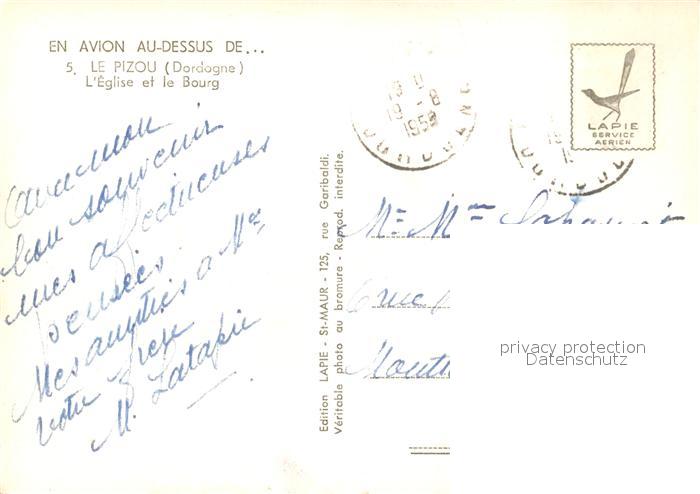 EN AVION AU-DESSUS DE...
5. LE PIZOU (Dordogne)
L'Église et le Bourg
Avec mon
bon souvenir
mes affectueuses
pensées.
Mes amitiés à Mr
votre frère
M. Latapie
Edition LAPIE - St-MAUR - 125, rue Garibaldi.
Véritable photo au bromure - Reprod. interdite.
19-8
1959
DORDOGNE
LAPIE
SERVICE
AÉRIEN
DORDOGNE
Mr Mme
privacy protection
Datenschutz